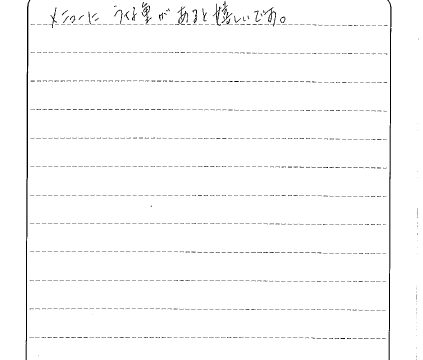 メニューに うな重が あると嬉しいです。